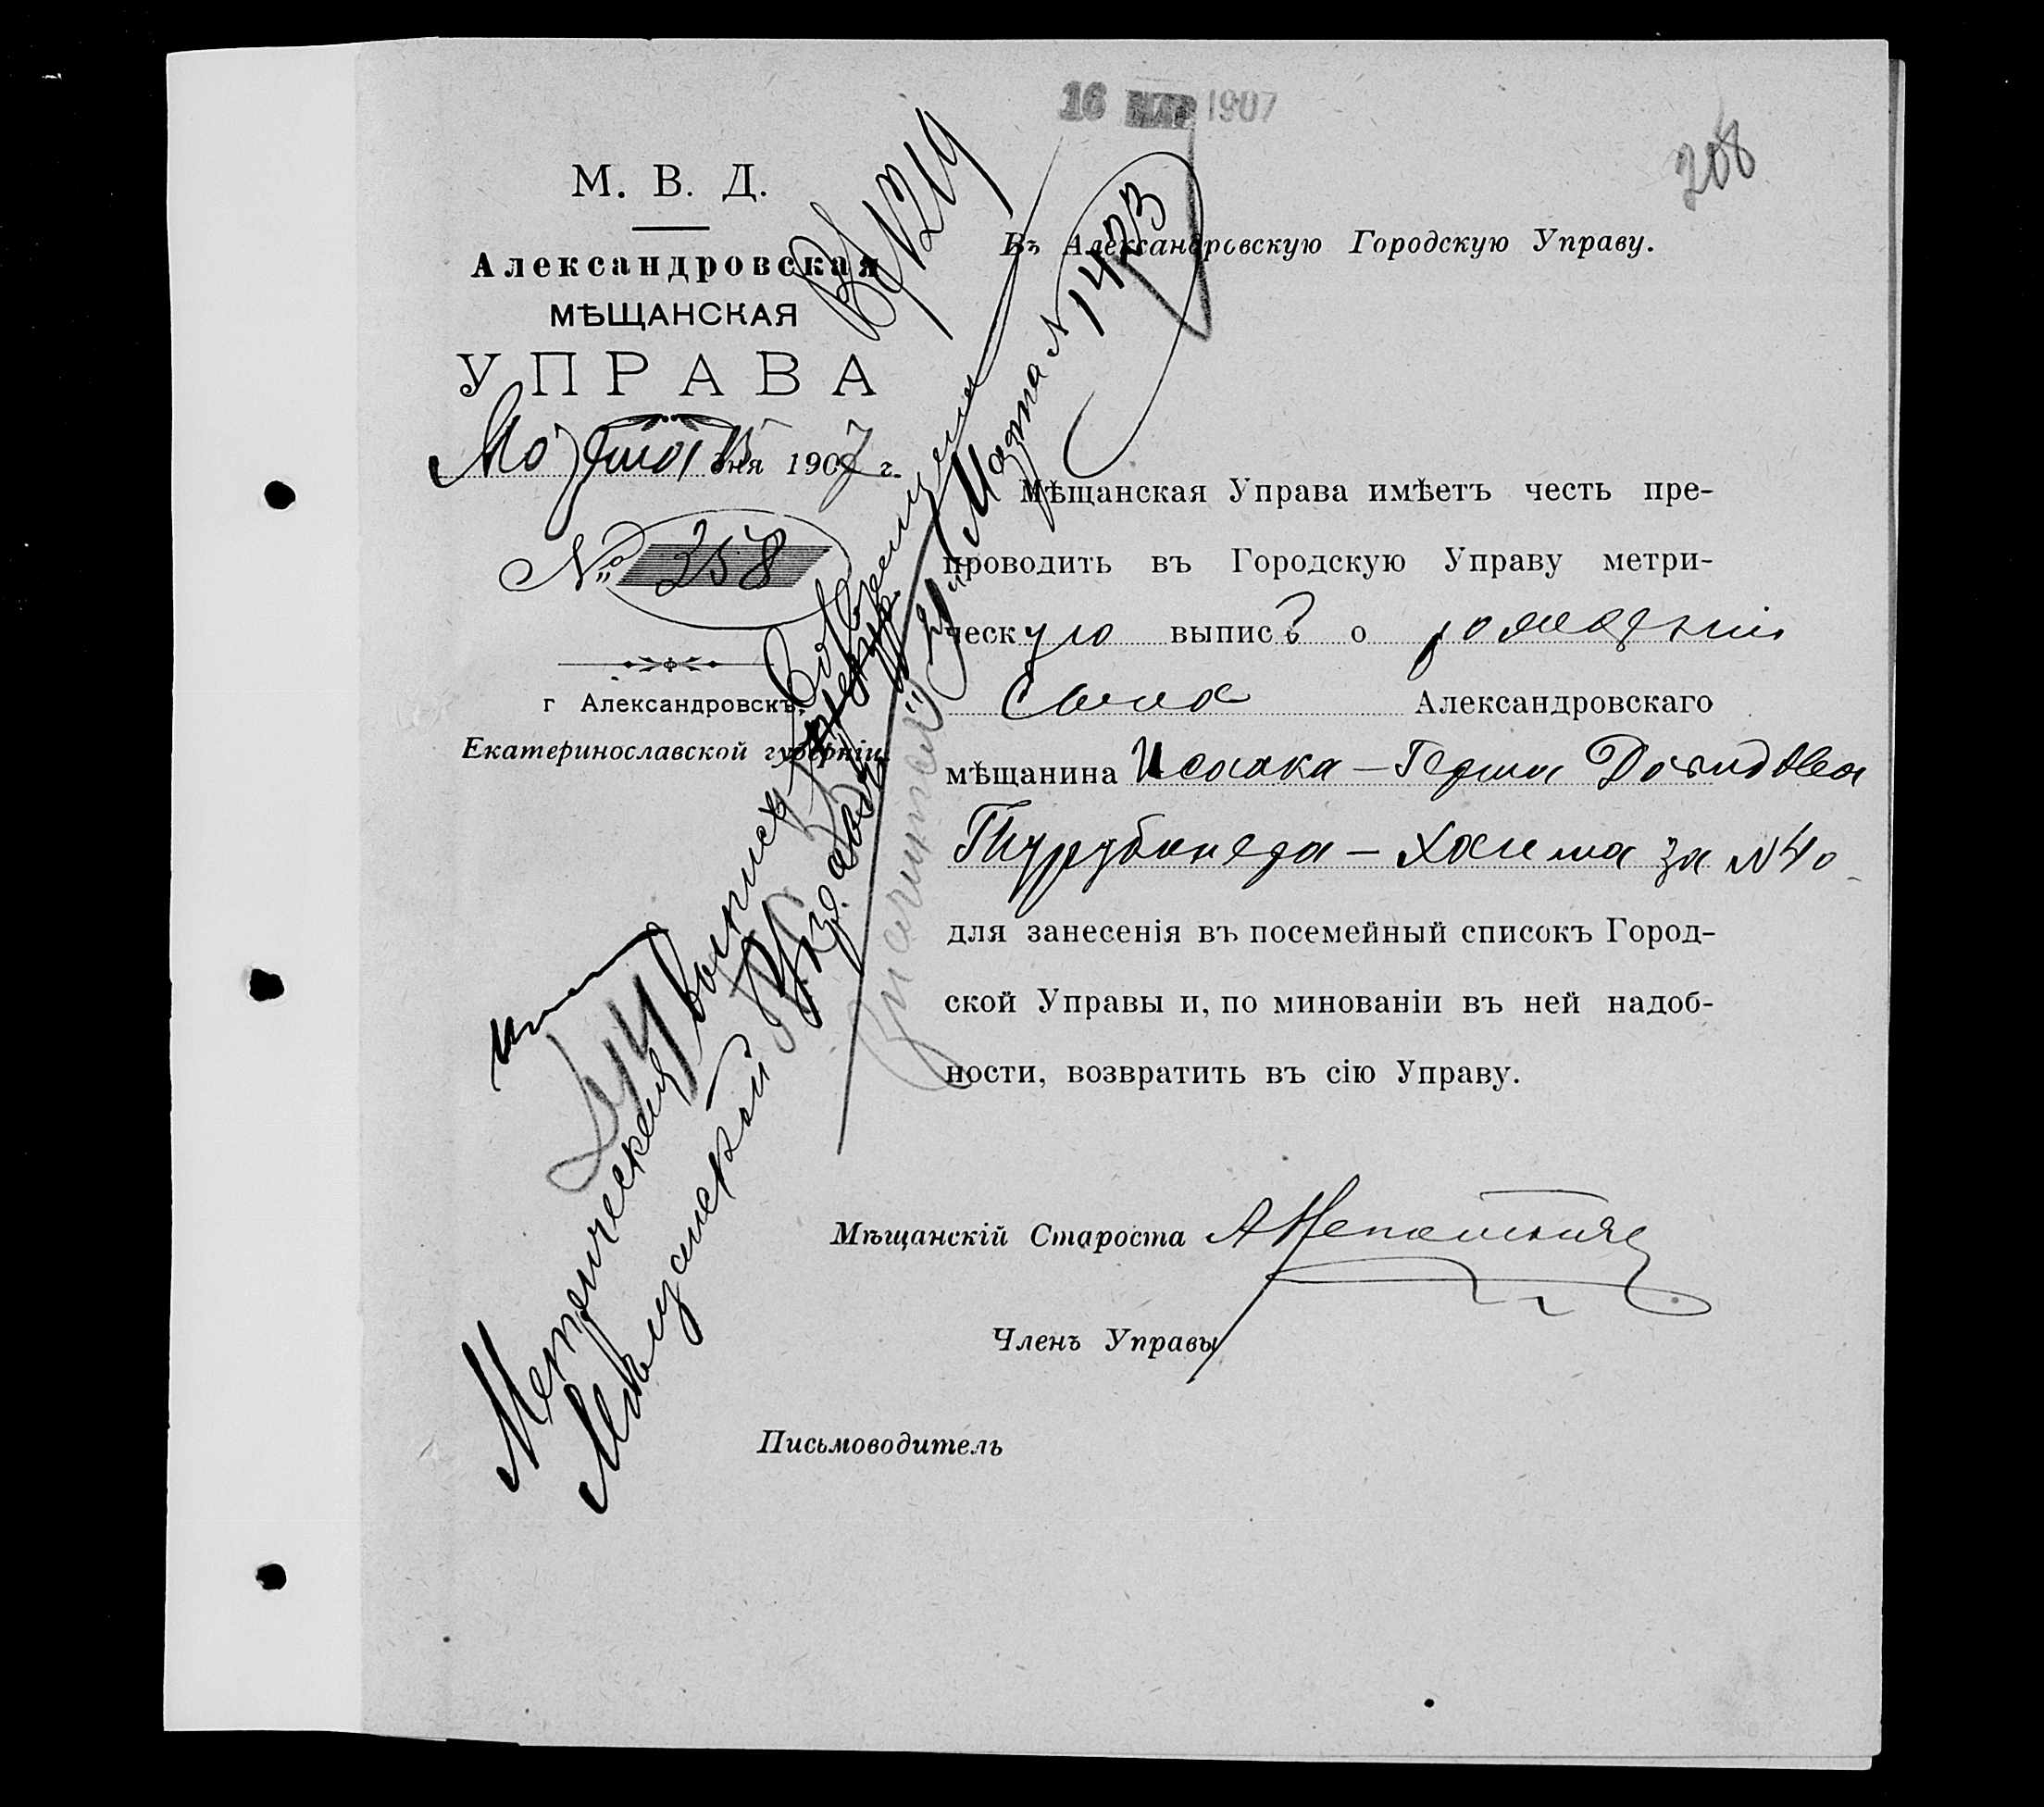 16 МАР 1907
208
М. В. Д.
Александровская
МѢЩАНСКАЯ
УПРАВА
Марта 15 дня 1907 г.
№ 258
г Александровскъ,
Екатеринославской губерніи.
Въ Александровскую Городскую Управу.
Мѣщанская Управа имѣетъ честь пре-
проводить въ Городскую Управу метри-
ческую выпись о рожденіи
сына Александровскаго
мѣщанина Исаака-Герша Давидова
Турубинера - Хаима за №40
для занесенія въ посемейный списокъ Город-
ской Управы и, по минованіи въ ней надоб-
ности, возвратить въ сію Управу.
Мѣщанскій Староста
Членъ Управы
Письмоводитель
Вх 1219
Метрическая выпись
Мѣщанской Управы
Марта № 1423